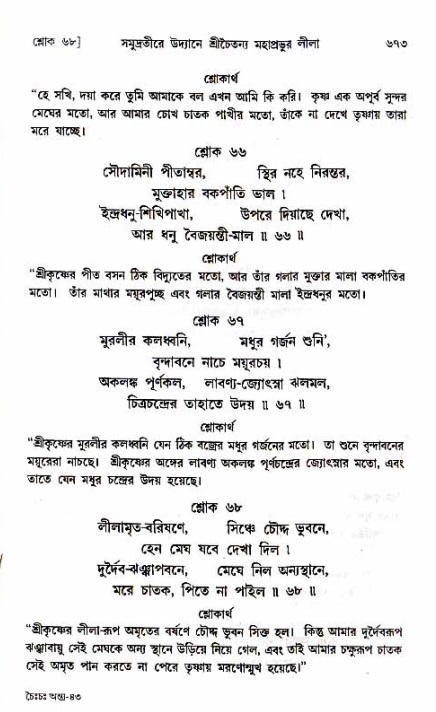 শ্লোক ৬৮] সমুদ্রতীরে উদ্যানে শ্রীচৈতন্য মহাপ্রভুর লীলা ৬৭৩
শ্লোকার্থ
“হে সখি, দয়া করে তুমি আমাকে বল এখন আমি কি করি। কৃষ্ণ এক অপূর্ব সুন্দর
মেঘের মতো, আর আমার চোখ চাতক পাখীর মতো, তাঁকে না দেখে তৃষ্ণায় তারা
মরে যাচ্ছে।
শ্লোক ৬৬
সৌদামিনী পীতাম্বর, স্থির নহে নিরন্তর,
মুক্তাহার বকপাঁতি ভাল ।
ইন্দ্রধনু-শিখিপাখা, উপরে দিয়াছে দেখা,
আর ধনু বৈজয়ন্তী-মাল ॥ ৬৬ ॥
শ্লোকার্থ
“শ্রীকৃষ্ণের পীত বসন ঠিক বিদ্যুতের মতো, আর তাঁর গলার মুক্তার মালা বকপাঁতির
মতো। তাঁর মাথার ময়ূরপুচ্ছ এবং গলার বৈজয়ন্তী মালা ইন্দ্রধনুর মতো।
শ্লোক ৬৭
মুরলীর কলধ্বনি, মধুর গর্জন শুনি’,
বৃন্দাবনে নাচে ময়ূরচয় ।
অকলঙ্ক পূর্ণকল, লাবণ্য-জ্যোৎস্না ঝলমল,
চিত্রচন্দ্রের তাহাতে উদয় ॥ ৬৭ ॥
শ্লোকার্থ
“শ্রীকৃষ্ণের মুরলীর কলধ্বনি যেন ঠিক বজ্রের মধুর গর্জনের মতো। তা শুনে বৃন্দাবনের
ময়ূরেরা নাচছে। শ্রীকৃষ্ণের অঙ্গের লাবণ্য অকলঙ্ক পূর্ণচন্দ্রের জ্যোৎস্নার মতো, এবং
তাতে যেন মধুর চন্দ্রের উদয় হয়েছে।
শ্লোক ৬৮
লীলামৃত-বরিষণে, সিঞ্চে চৌদ্দ ভুবনে,
হেন মেঘ যবে দেখা দিল ।
দুর্দৈব-ঝঞ্ঝাপবনে, মেঘে নিল অন্যস্থানে,
মরে চাতক, পিতে না পাইল ॥ ৬৮ ॥
শ্লোকার্থ
“শ্রীকৃষ্ণের লীলা-রূপ অমৃতের বর্ষণে চৌদ্দ ভুবন সিক্ত হল। কিন্তু আমার দুর্দৈবরূপ
ঝঞ্ঝাবায়ু সেই মেঘকে অন্য স্থানে উড়িয়ে নিয়ে গেল, এবং তাই আমার চক্ষুরূপ চাতক
সেই অমৃত পান করতে না পেরে তৃষ্ণায় মরণোন্মুখ হয়েছে।”
চৈঃচঃ অন্ত্য-৪৩